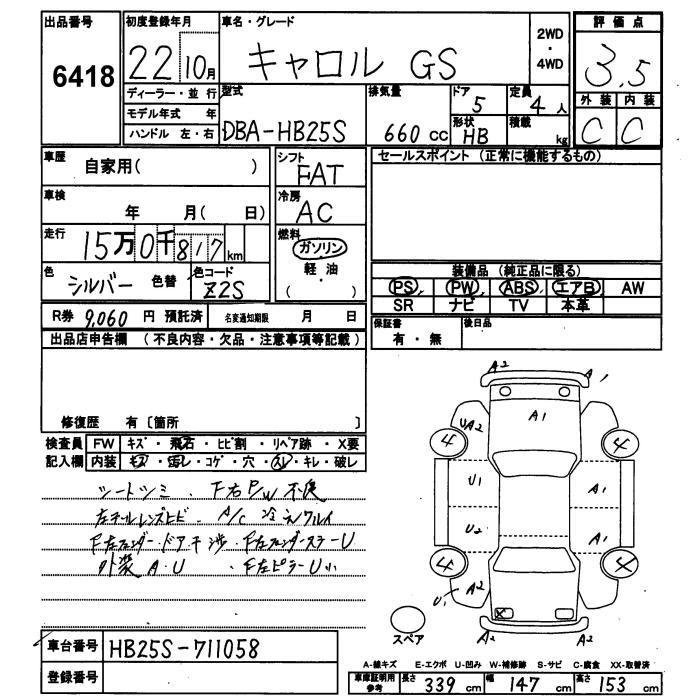 出品番号 初度登録年月 車名・グレード 評価点
6418 22 10月 キャロル GS 2WD・4WD 3.5
ディーラー・並行 型式 排気量 ドア 5 定員 4人 外装 内装
モデル年式 年 DBA-HB25S 660cc 形状 HB 積載 kg C C
ハンドル 左・右
車歴 自家用( ) シフト FAT セールスポイント (正常に機能するもの)
車検 年 月( 日) 冷房 AC
走行 15万0千817km 燃料 ガソリン
軽油
( )
色 シルバー 色替 色コード Z2S
装備品 (純正品に限る)
PS PW ABS エアB AW
SR ナビ TV 本革
R券 9,060 円 預託済 名変通知期限 月 日
保証書 有・無 後日品
出品店申告欄 (不良内容・欠品・注意事項等記載)
修復歴 有〔箇所 〕
検査員 FW キズ・飛石・ヒビ割・リペア跡・X要
記入欄 内装 キズ・汚レ・コゲ・穴・スレ・キレ・破レ
シートシミ F右P/W不良
左テールレンズヒビ A/C冷えワルイ
F左フェンダー・ドア干渉・F左フェンダーステーU
外装A・U ・F左ピラーU小
A2 A1
UA2 A1
4 4
U1 A1
U2 A1
4 4
U1 A2
X
A2 A2
スペア
車台番号 HB25S-711058
登録番号
A-線キズ E-エクボ U-凹み W-補修跡 S-サビ C-腐食 XX-取替済
車庫証明用参考 長さ 339 cm 幅 147 cm 高さ 153 cm